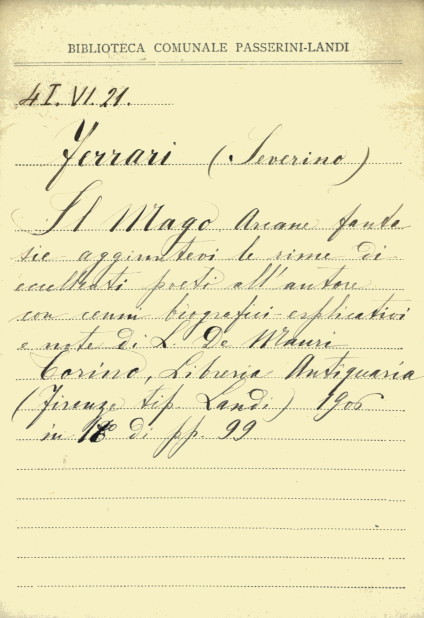 BIBLIOTECA COMUNALE PASSERINI-LANDI
4I.VI.21.
Ferrari (Severino)
Il Mago Arcane fanta
sie aggiuntevi le rime di
eccellenti poeti all'autore
con cenni biografici esplicativi
e note di L. De Mauri
Torino, Libreria Antiquaria
(Firenze tip Landi) 1906
in 16° di pp. 99